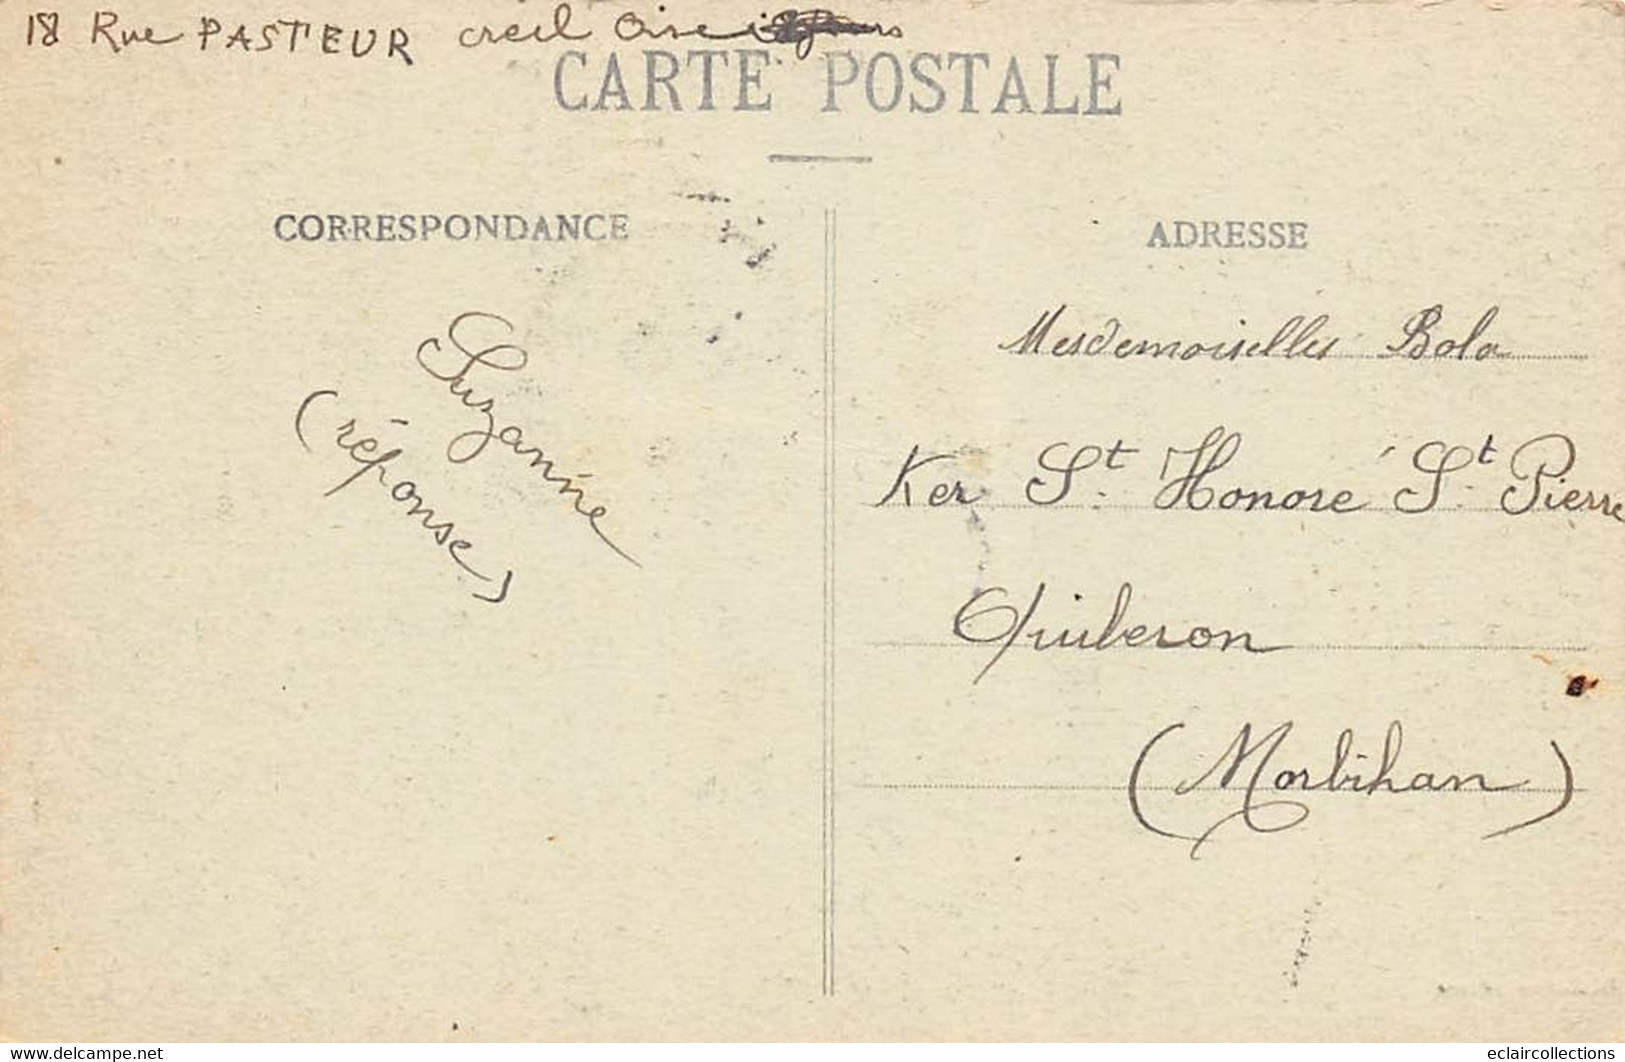 18 Rue PASTEUR creil Oise
CARTE POSTALE
CORRESPONDANCE
Suzanne
(réponse)
ADRESSE
Mesdemoiselles Bola
Ker St Honoré St Pierre
Quiberon
(Morbihan)
www.delcampe.net
eclaircollections